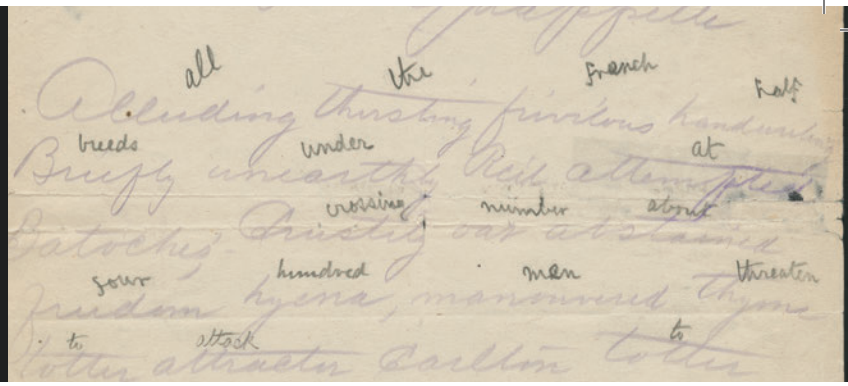 Qu'appelle
all the French half
Alluding thirsting frivilous handwriting
breeds under at
Briefly unearthly Reil attempted
crossing number about
Batoche's Crustily oar abstained
four hundred man threaten
freedom hyena, manouvered thyme
to attack to
totter attractor Carlton totter